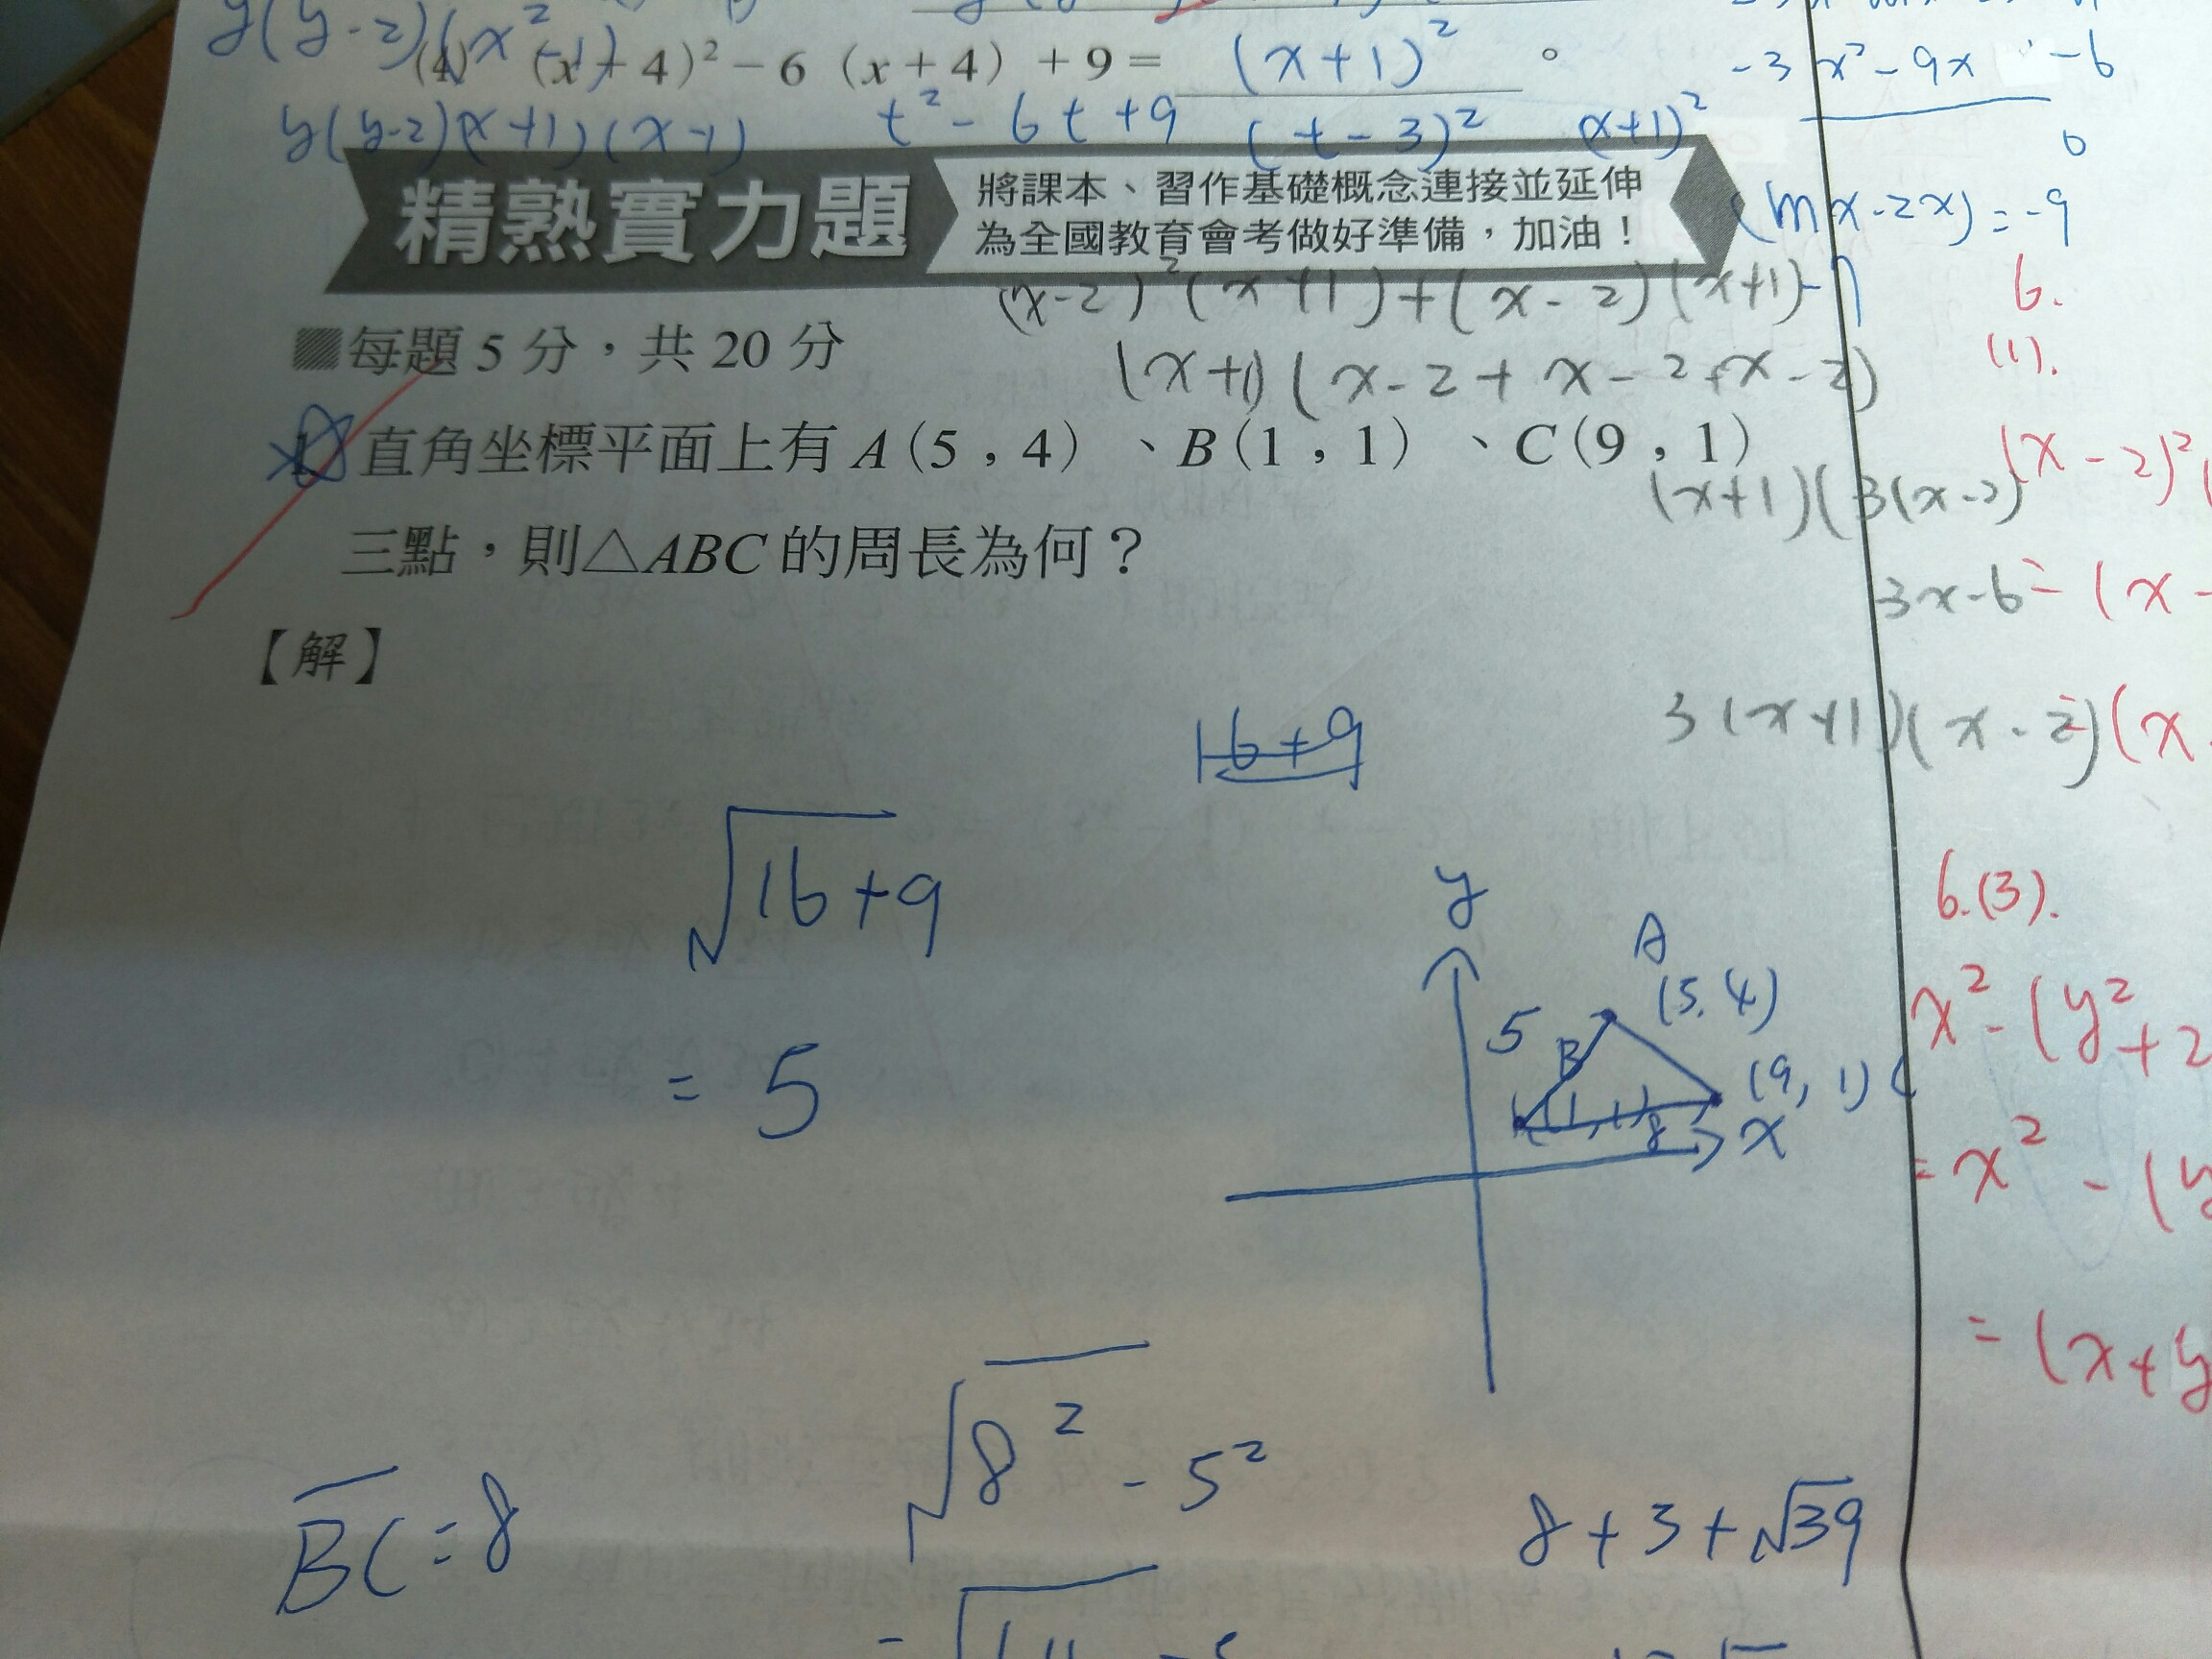 y(y-2)(x²-1)
(4) (x+4)²-6(x+4)+9= (x+1)² 。
y(y-2)(x+1)(x-1)
t²-6t+9
(t-3)²
(x+1)²
-3x²-9x -6
0
精熟實力題
將課本、習作基礎概念連接並延伸
為全國教育會考做好準備,加油!
(mx-2x)=-9
(x-2)²(x+1)+(x-2)(x+1)-
6.
(1).
■每題5分,共20分
(x+1)(x-2+x-2+x-2)
1. 直角坐標平面上有A(5,4)、B(1,1)、C(9,1)
(x-2)²(
(x+1)(3(x-2)
三點,則△ABC的周長為何?
3x-6
=(x-
【解】
16+9
3(x+1)(x-2)
=(x
√16+9
= 5
y
A
(5,4)
5
B
(9,1) C
(1,1)
8
x
6.(3).
x²-(y²+2
=x²-(y
=(x+y
BC=8
√8²-5²
8+3+√39